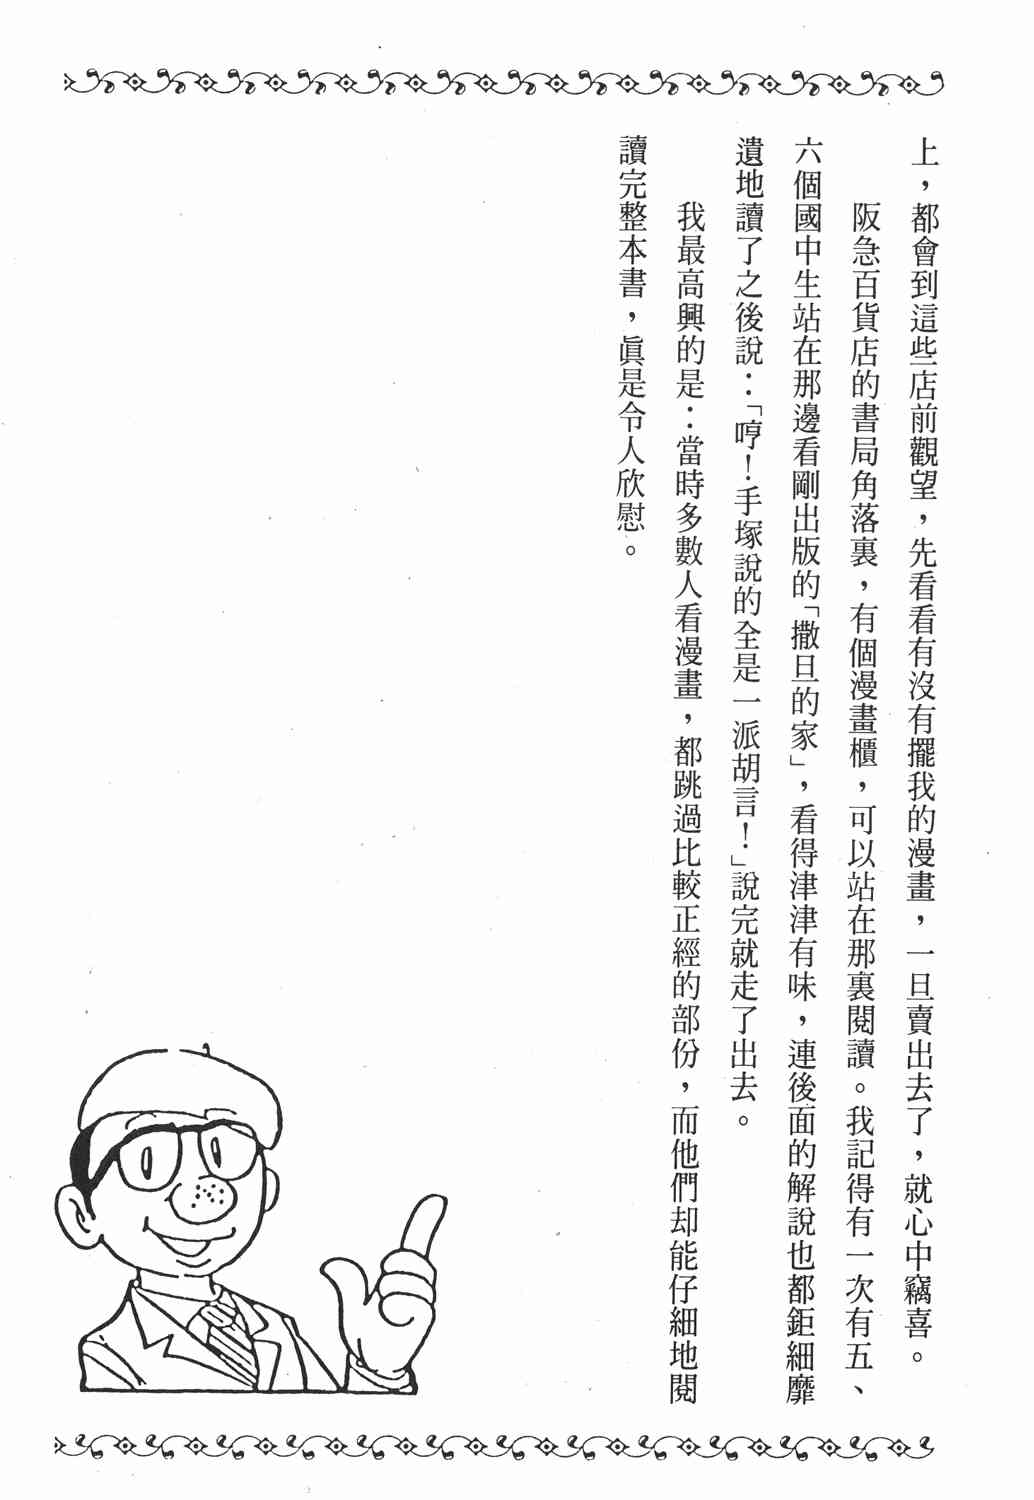 上，都會到這些店前觀望，先看看有沒有擺我的漫畫，一旦賣出去了，就心中竊喜。
阪急百貨店的書局角落裏，有個漫畫櫃，可以站在那裏閱讀。我記得有一次有五、
六個國中生站在那邊看剛出版的「撒旦的家」，看得津津有味，連後面的解說也都鉅細靡
遺地讀了之後說：「哼！手塚說的全是一派胡言！」說完就走了出去。
我最高興的是：當時多數人看漫畫，都跳過比較正經的部份，而他們却能仔細地閱
讀完整本書，眞是令人欣慰。